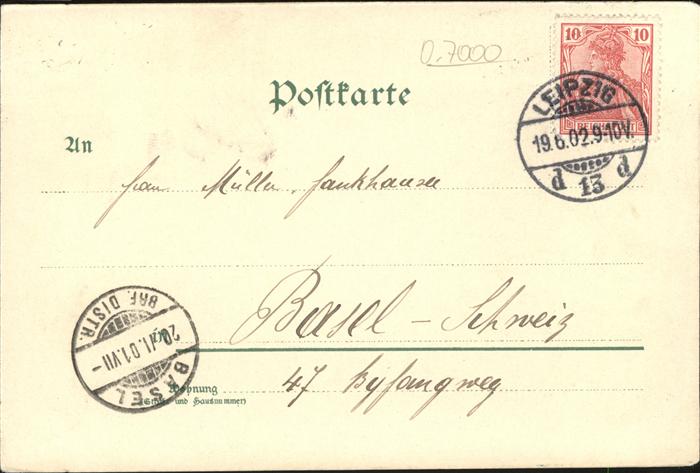 0.7000
10 10
REICHSPOST
LEIPZIG
19.6.02.9-10V.
d 13 d
Postkarte
An
Frau Müller-Fankhauser
Basel - Schweiz
BASEL
BRF. DISTR.
Wohnung
(Straße und Hausnummer)
47 Byfangweg